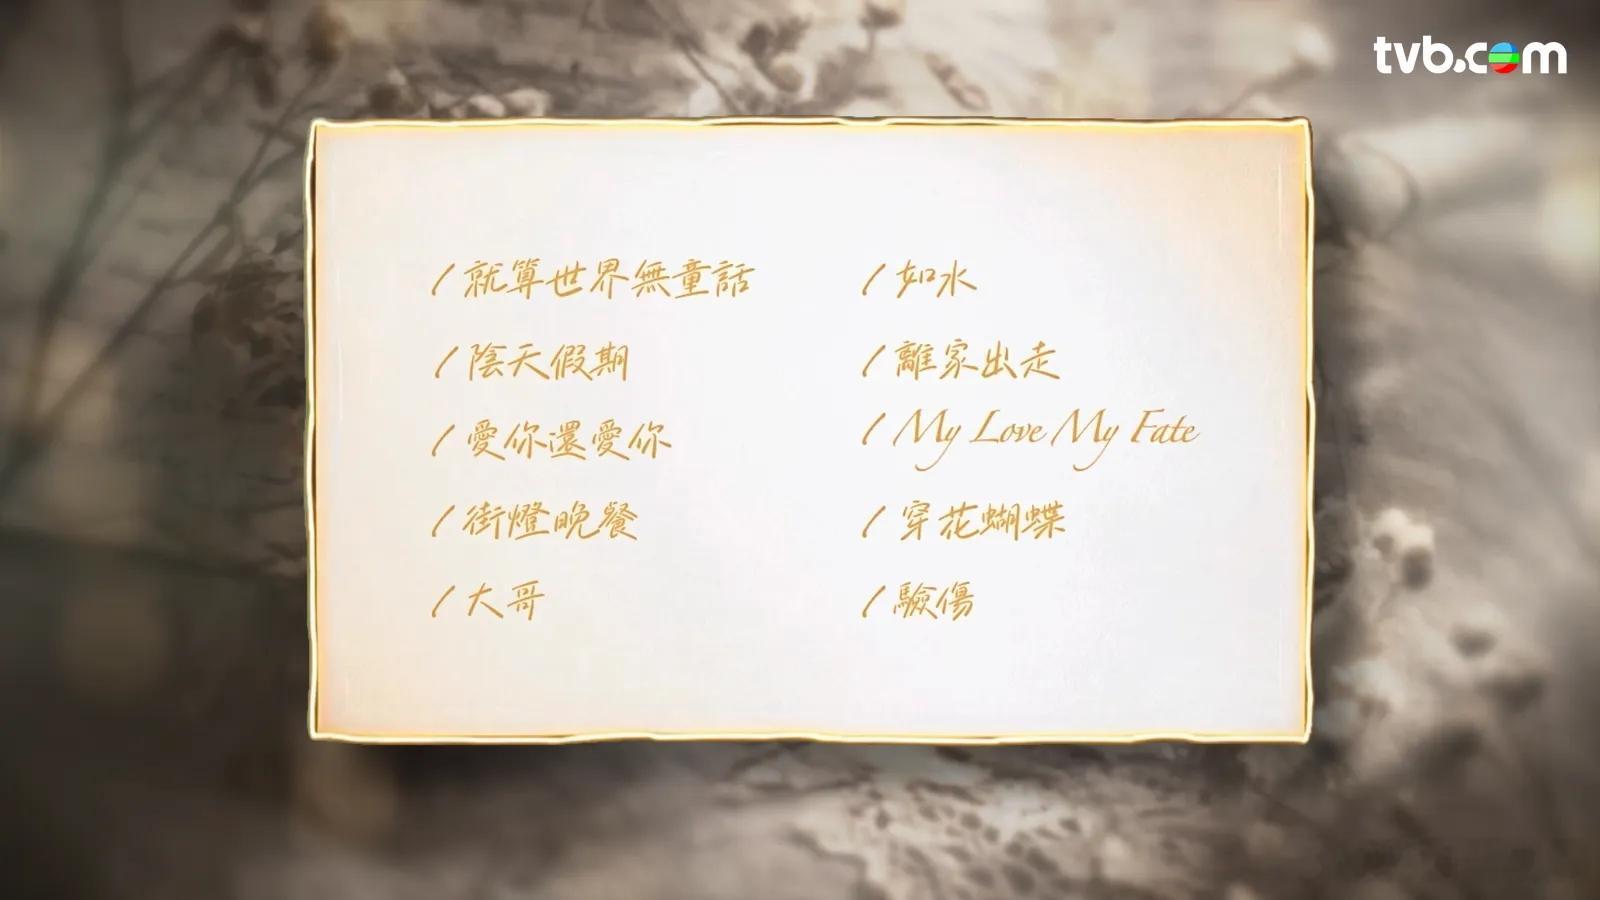 tvb.com
/ 就算世界無童話
/ 陰天假期
/ 愛你還愛你
/ 街燈晚餐
/ 大哥
/ 如水
/ 離家出走
/ My Love My Fate
/ 穿花蝴蝶
/ 驗傷